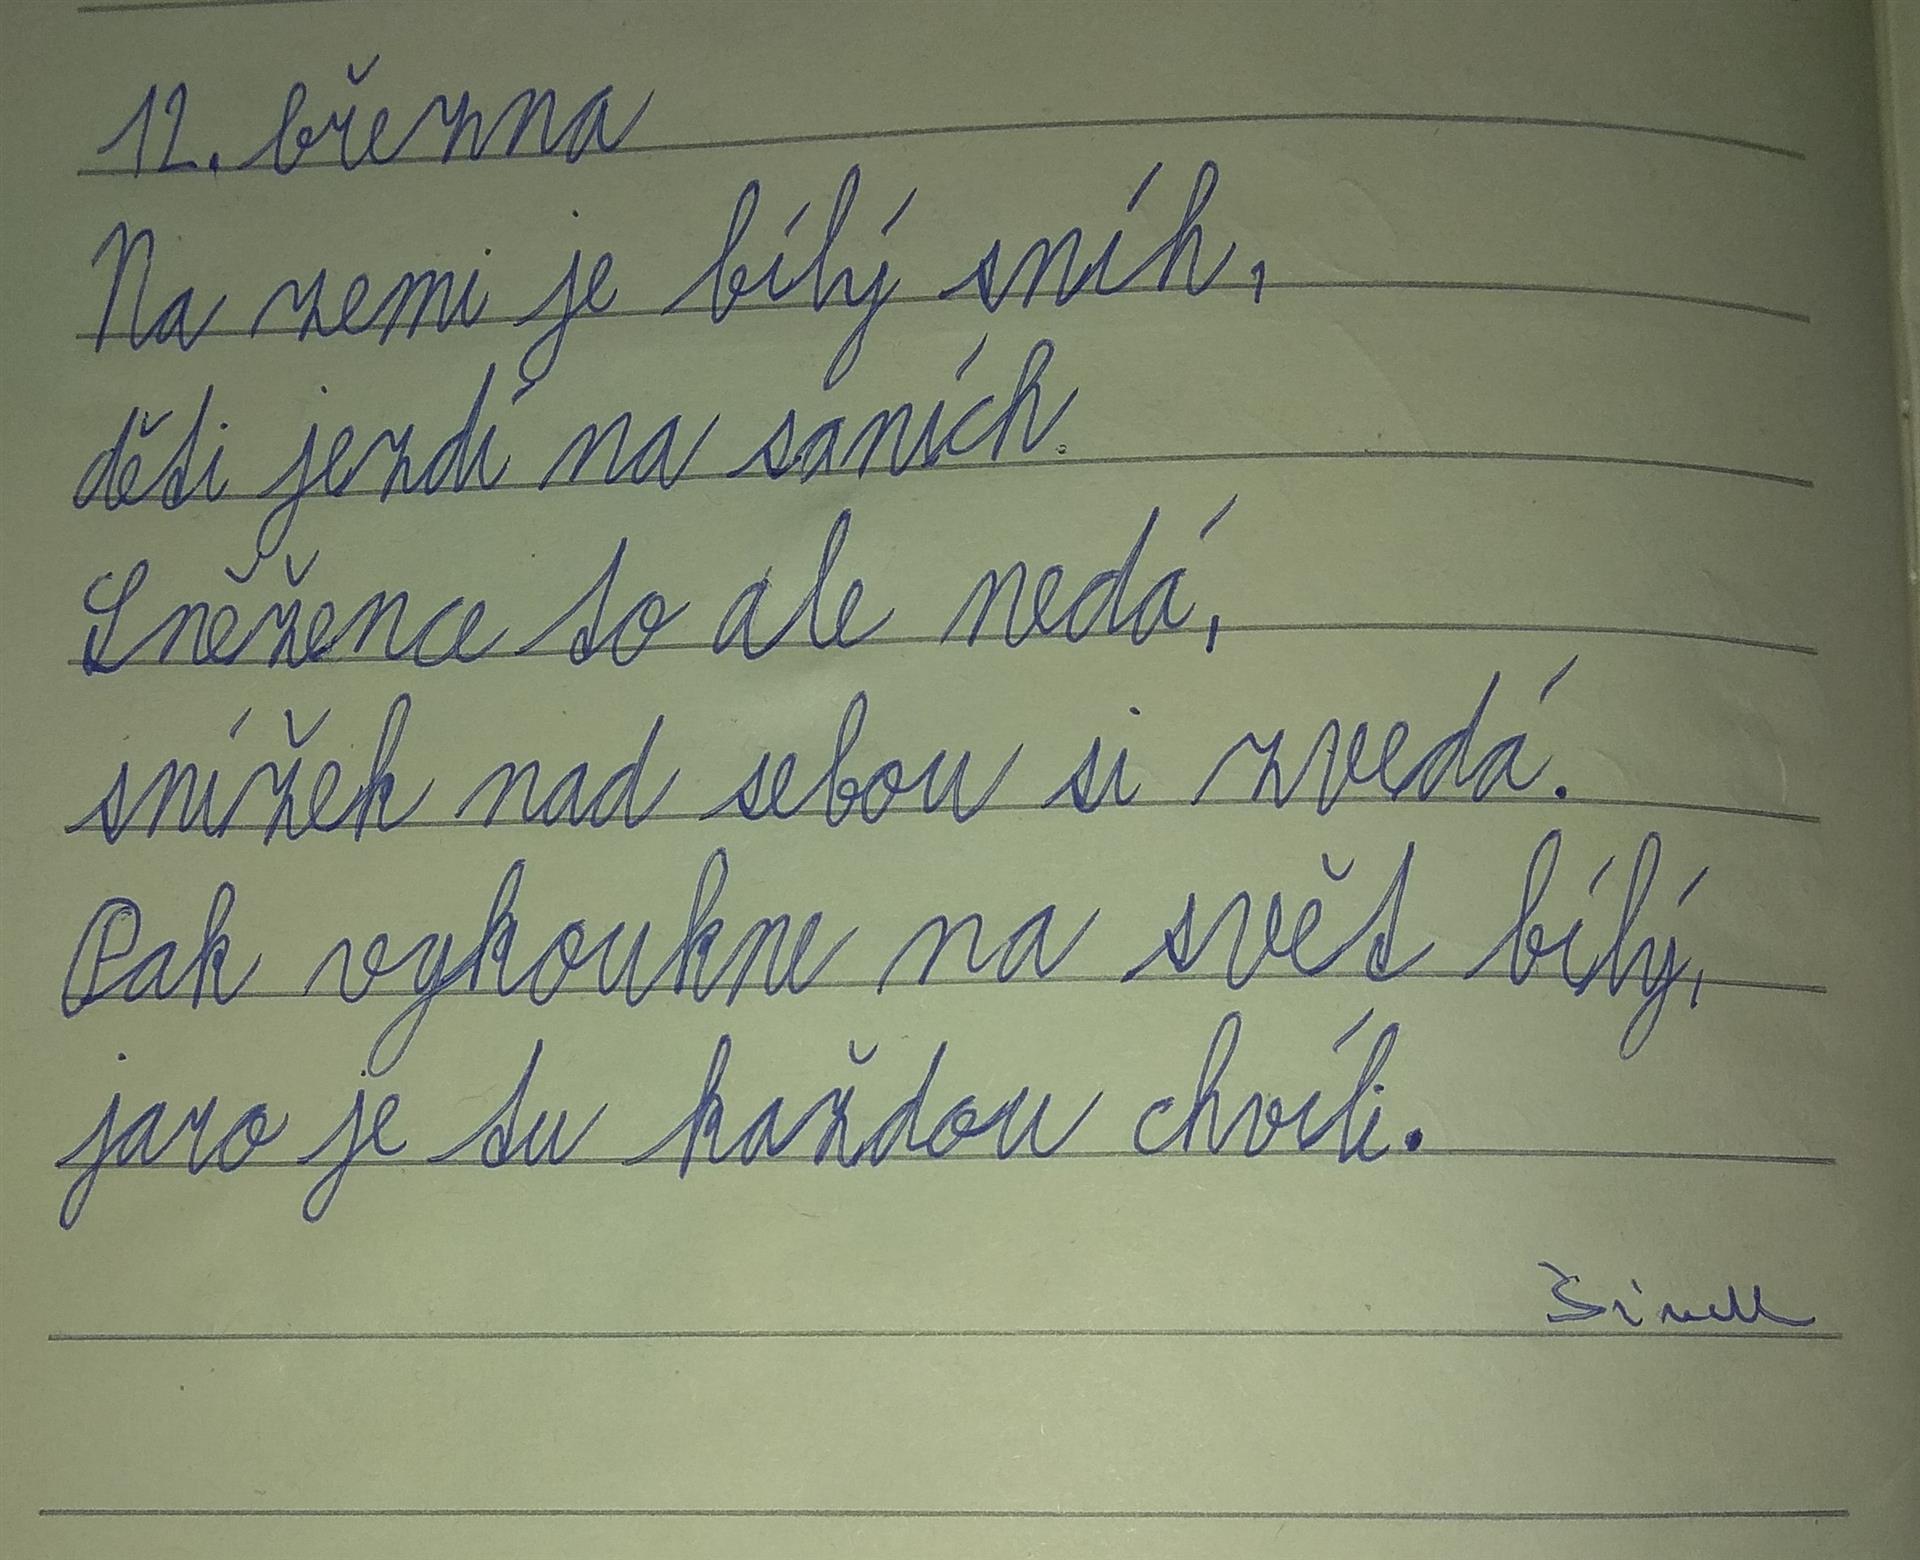 12. března
Na zemi je bílý sníh,
děti jezdí na saních.
Sněžence to ale nedá,
snížek nad sebou si zvedá.
Pak vykoukne na svět bílý,
jaro je tu každou chvíli.